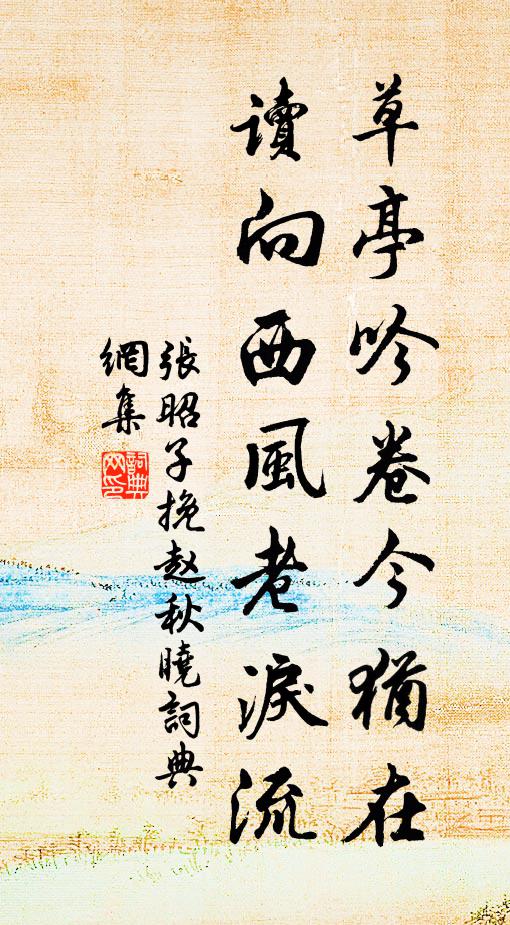 草亭吟卷今猶在
讀向西風老淚流
張昭子挽赵秋曉詞典
網集
詞典
网印